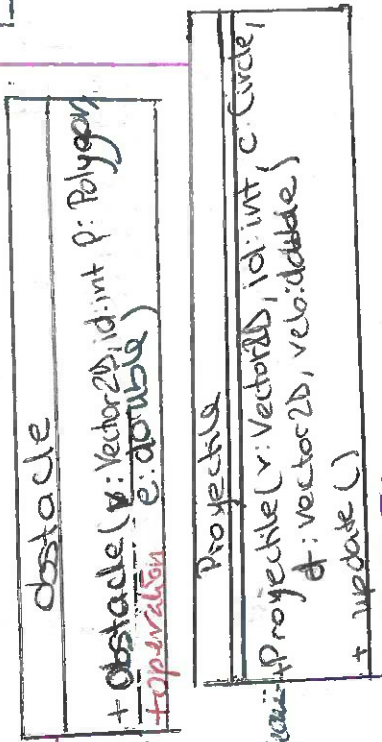 obstacle
+ obstacle(r: Vector2D, id: int p: Polygon
e: double)
+operation
Proyectile
+Proyectile(r: Vector2D, id: int c: Circle,
d: vector2D, velo: double)
+ update()